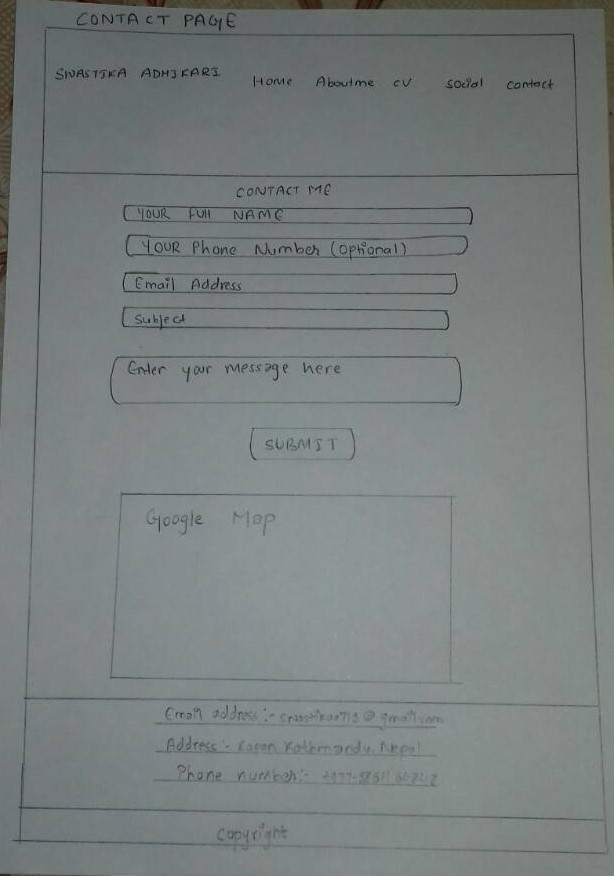 CONTACT PAGE
SWASTIKA ADHIKARI Home Aboutme CV social contact
CONTACT ME
YOUR FUll NAME
YOUR Phone Number (optional)
Email Address
Subject
Enter your message here
SUBMIT
Google Map
Email address:- @gmail.com
Address:- Kathmandu, Nepal
Phone number:-
copyright